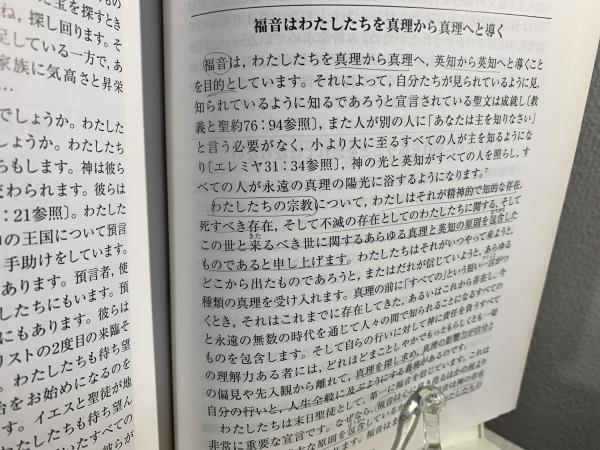 福音はわたしたちを真理から真理へと導く
福音は，わたしたちを真理から真理へ，英知から英知へと導くこと
を目的としています。それによって，自分たちが見られているように見，
知られているように知るであろうと宣言されている聖文は成就し〔教
義と聖約76：94参照〕，また人が別の人に「あなたは主を知りなさい」
と言う必要がなく，小より大に至るすべての人が主を知るようにな
り〔エレミヤ31：34参照〕，神の光と英知がすべての人を照らし，す
べての人が永遠の真理の陽光に浴するようになります。7
わたしたちの宗教について，わたしはそれが精神的で知的な存在，
死すべき存在，そして不滅の存在としてのわたしたちに関する，そして
この世と来るべき世に関するあらゆる真理と英知の原則を包含した
ものであると申し上げます。わたしたちはそれがいつやって来ようと，
どこから出たものであろうと，またはだれが信じていようと，あらゆる
種類の真理を受け入れます。真理の前に「すべての」という短い一語がつ
くとき，それはこれまでに存在してきた，あるいはこれから存在し，今
と永遠の無数の時代を通じて人々の間で知られることになるすべての
ものを包含します。そして自らの行いに対して神に責任を負うすべて
の理解力ある者には，どれほどまことしやかでもっともらしくとも一切
の偏見や先入観から離れて，真理を探し求め，真理の影響力が自分と
自分の行いと，人生全般に及ぶようにする義務があるのです。
わたしたちは末日聖徒として，第一に福音を信じています。これは
非常に重要な宣言です。なぜなら，福音は
た宝を探すとき
ね，探し回ります。そ
足している一方で，あ
家族に気高さと昇栄
…
でしょうか。わたした
しょうか。わたしたち
ちもします。神は彼ら
変わられます。彼らは
：21参照〕。わたした
の王国について預言
手助けをしています。
あります。預言者，使
したちにもいます。預
にもあります。彼らは
リストの2度目の来臨そ
。わたしたちも待ち望
台をお始めになるのを
イエスと聖徒が地
たしたちも待ち望ん
いたすべての
彼らが